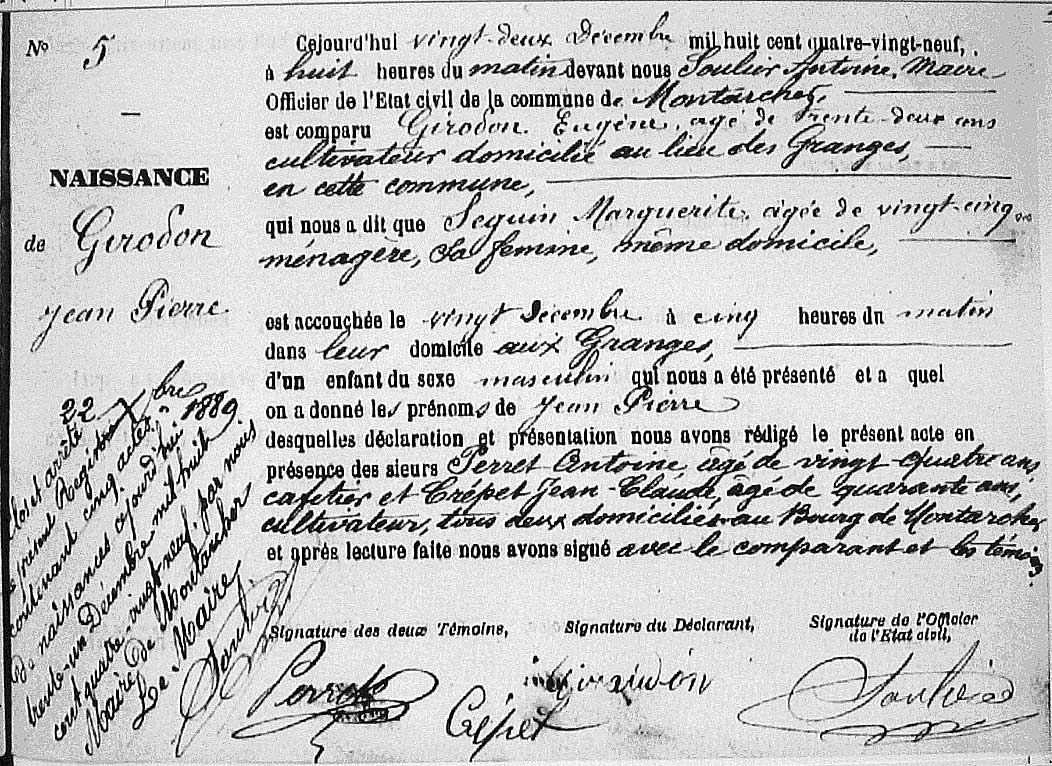 N° 5
NAISSANCE
de Girodon
Jean Pierre
Cejourd'hui vingt-deux Décembre mil huit cent quatre-vingt-neuf,
à huit heures du matin devant nous Soulier Antoine, Maire
Officier de l'Etat civil de la commune de Montarcher,
est comparu Girodon Eugène, agé de trente-deux ans
cultivateur domicilié au lieu des Granges,
en cette commune,
qui nous a dit que Seguin Marguerite, agée de vingt-cinq ans
ménagère, sa femme, même domicile,
est accouchée le vingt Décembre à cinq heures du matin
dans leur domicile aux Granges,
d'un enfant du sexe masculin qui nous a été présenté et a quel
on a donné les prénoms de Jean Pierre
desquelles déclaration et présentation nous avons rédigé le présent acte en
présence des sieurs Perret Antoine, âgé de vingt-quatre ans
cafetier et Crépet Jean-Claude, âgé de quarante ans,
cultivateur, tous deux domiciliés au Bourg de Montarcher
et après lecture faite nous avons signé avec le comparant et les témoins.
22 Xbre 1889
Clos et arrêté
le présent Registre
contenant cinq actes
de naissances cejourd'hui
trente-un Décembre mil huit
cent quatre vingt neuf, par nous
Maire de Montarcher
Le Maire
Soulier
Signature des deux Témoins, Signature du Déclarant, Signature de l'Officier
de l'Etat civil,
Perret Girodon Soulier
Crépet